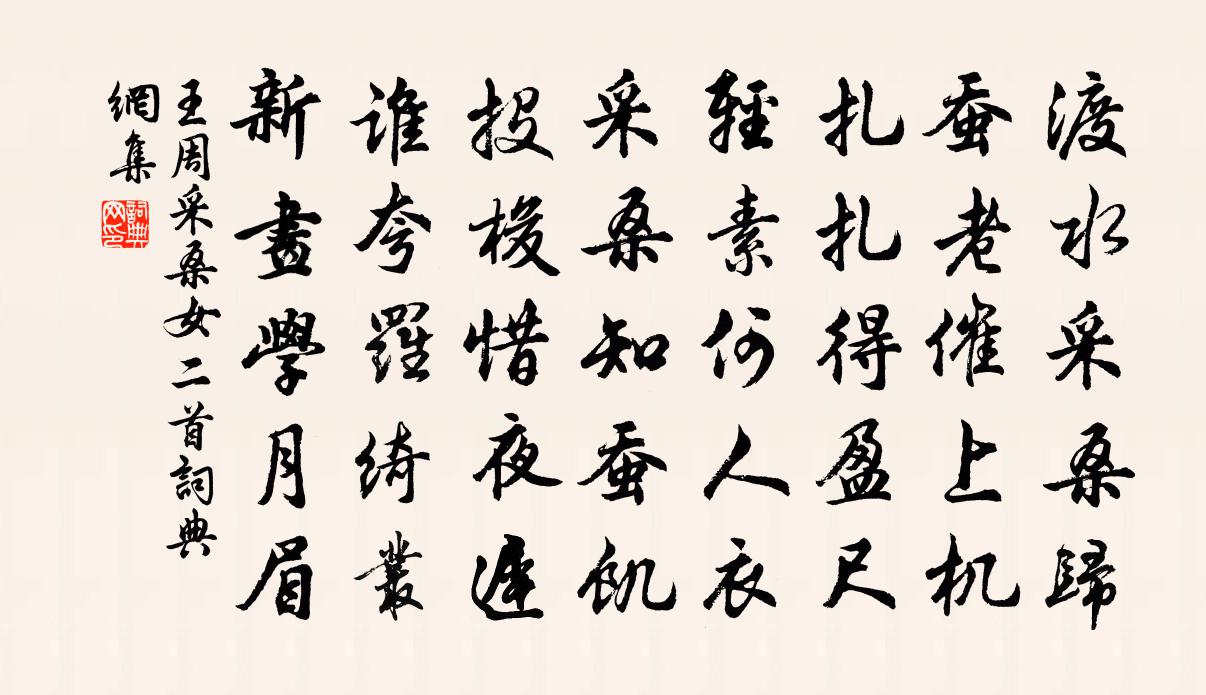 渡水采桑歸
蚕老催上机
扎扎得盈尺
輕素何人衣
采桑知蚕飢
投梭惜夜遲
誰夸羅綺叢
新畫學月眉
王周采桑女二首詞典
網集
詞典網印